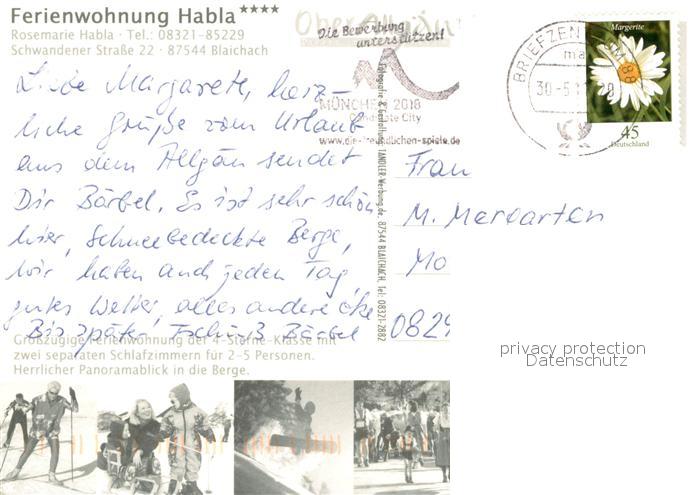 Ferienwohnung Habla ****
Rosemarie Habla · Tel.: 08321-85229
Schwandener Straße 22 · 87544 Blaichach
Oberallgäu
Die Bewerbung
unterstützen!
MÜNCHEN 2018
Candidate City
www.die-freundlichen-spiele.de
BRIEFZEN
30-5
Margerite
45
Deutschland
Liebe Margarete, herz-
liche Grüße vom Urlaub
aus dem Allgäu sendet
Dir Bärbel. Es ist sehr schön
hier, Schneebedeckte Berge,
wir haben auch jeden Tag
gutes Wetter, alles andere
Bis später Tschüß Bärbel
Fotografie & Gestaltung: TANDLER-Werbung.de, 87544 BLAICHACH, Tel: 08321-2882
Frau
M. Mergarten
Mo
0829
Großzügige Ferienwohnung der 4-Sterne-Klasse mit
zwei separaten Schlafzimmern für 2-5 Personen.
Herrlicher Panoramablick in die Berge.
privacy protection
Datenschutz